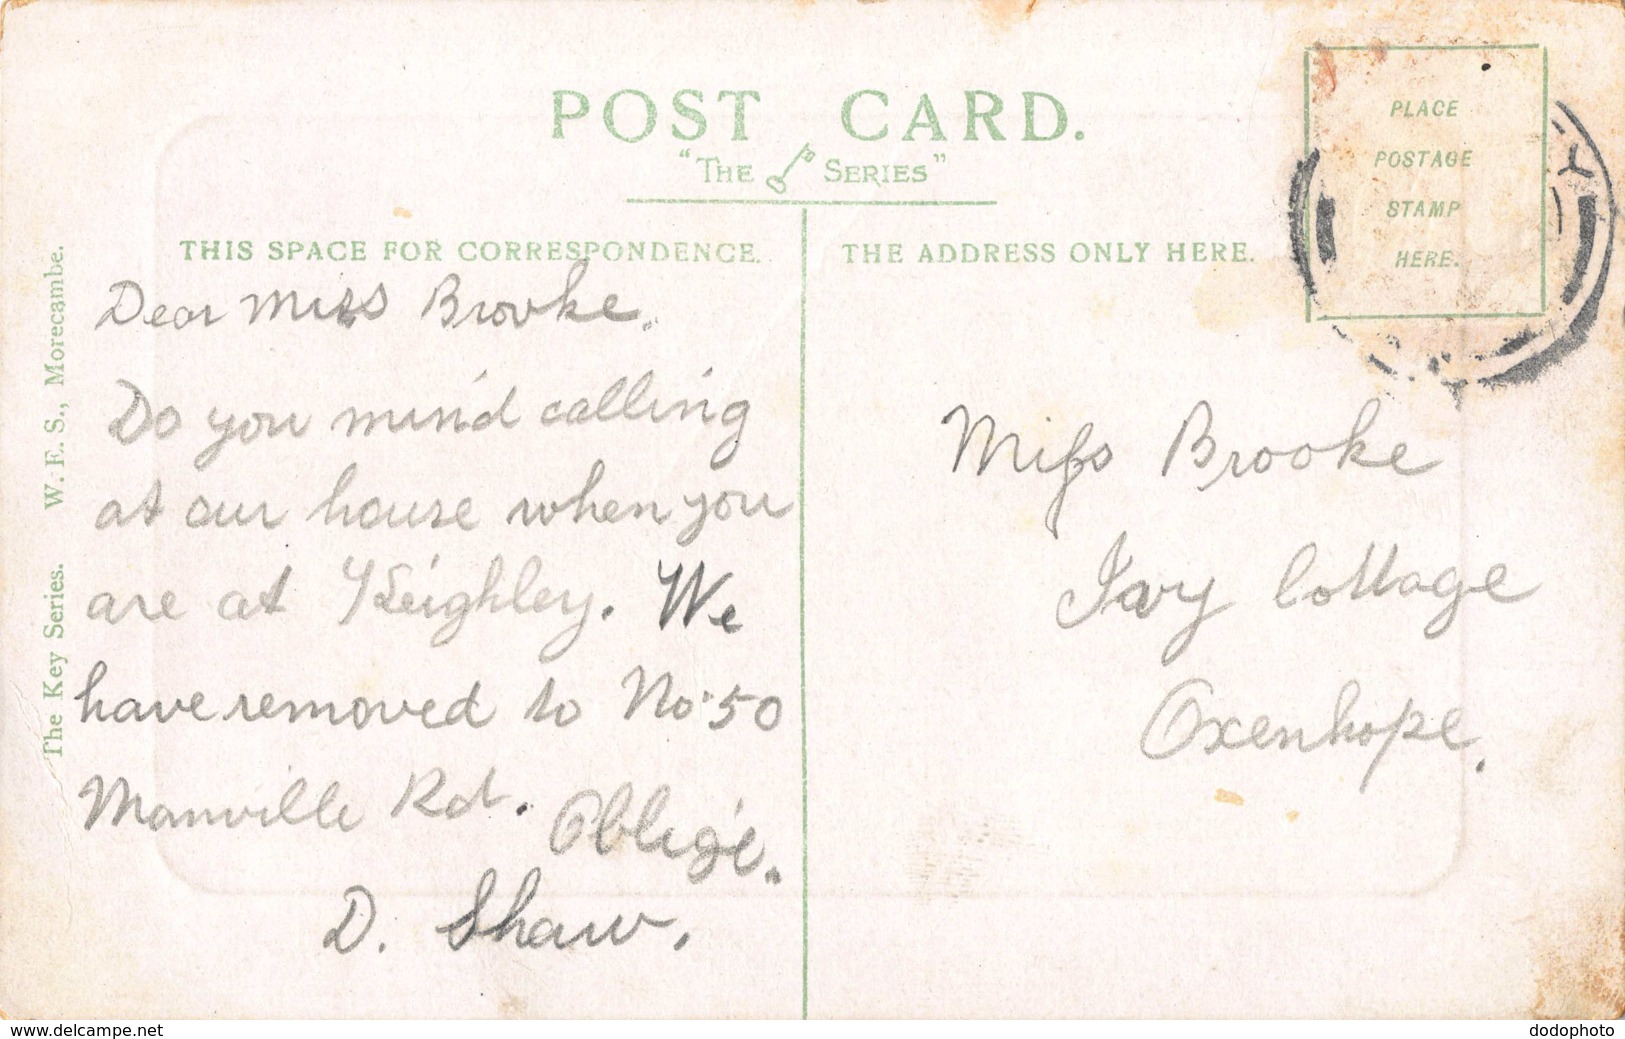 POST CARD.
"THE SERIES"
THIS SPACE FOR CORRESPONDENCE.
Dear Miss Brooke.
Do you mind calling
at our house when you
are at Keighley. We
have removed to No. 50
Manville Rd. Oblige.
D. Shaw.
THE ADDRESS ONLY HERE.
PLACE
POSTAGE
STAMP
HERE.
Miss Brooke
Ivy Cottage
Oxenhope.
The Key Series. W. E. S., Morecambe.
www.delcampe.net
dodophoto